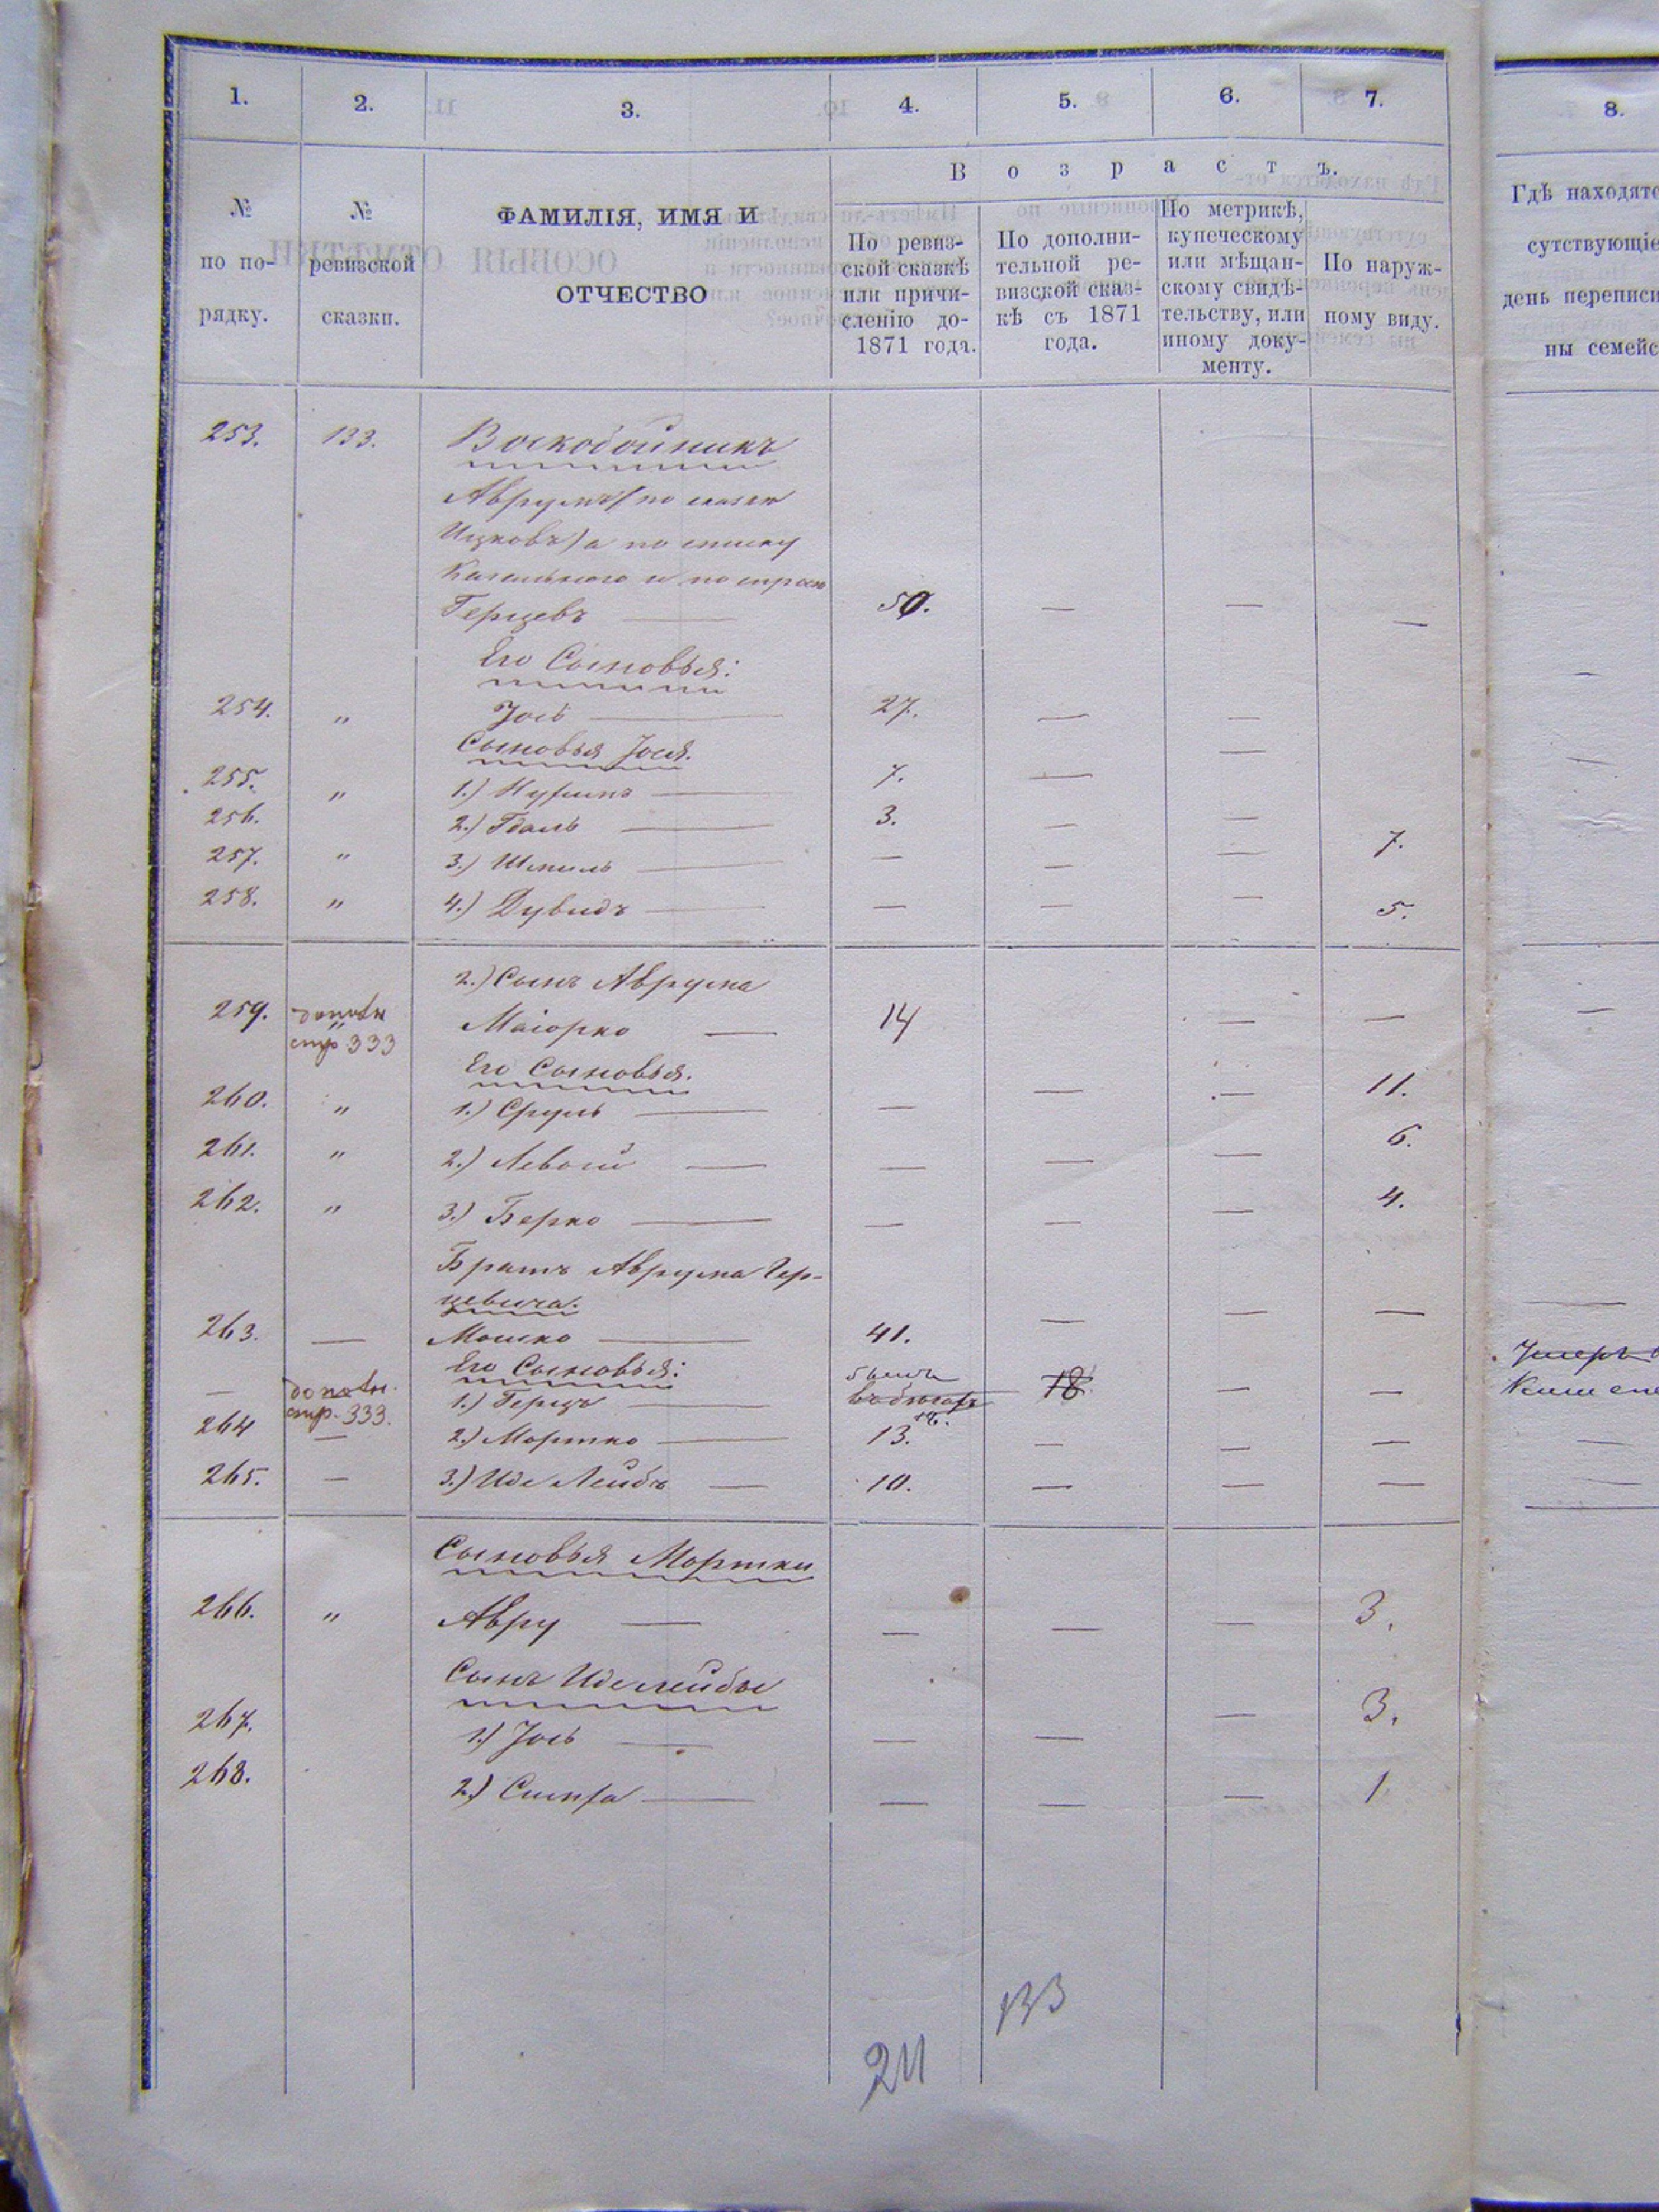 1. 2. 3. 4. 5. 6. 7. 8.
Возрастъ.
№ по порядку.
№ ревизской сказки.
ФАМИЛІЯ, ИМЯ И
ОТЧЕСТВО
По ревиз-
ской сказкѣ
или причи-
сленію до-
1871 года.
По дополни-
тельной ре-
визской сказ-
кѣ съ 1871
года.
По метрикѣ,
купеческому
или мѣщан-
скому свидѣ-
тельству, или
иному доку-
менту.
По наруж-
ному виду.
Гдѣ находятс
сутствующіе
день переписи
ны семейс
253. 133. Воскобойникъ
Аврумъ (по сказкѣ
Ицковъ) а по списку
Кагального и по
Герцевъ — 50. — — —
Его Сыновья:
254. " Іось — 27. — —
Сыновья Іося. —
255. " 1.) Нухимъ — 7. —
256. 2.) Гдаль — 3. — —
257. " 3.) Шмиль — — — — 7.
258. " 4.) Дувидъ — — — — 5.
2.) Сынъ Аврума
259. " стр 333 Маіорко — 14 — —
Его Сыновья.
260. " 1.) Сруль — — — — 11.
261. " 2.) Левой — — — — 6.
262. " 3.) Берко — — — — 4.
Братъ Аврума Гер-
цевича.
263. — Мошко — 41. — — —
Его Сыновья:
— стр. 333. 1.) Герцъ — былъ въ бѣгахъ 18. 18 — —
264 — 2.) Мортко — 13. — — —
265. — 3.) Иде Лейбъ — 10. — — —
Сыновья Мортки
266. " Авру — — — — 3.
Сынъ Иделейбы
267. 1.) Іось — — — — 3.
268. 2.) Симха — — — — 1
133
211